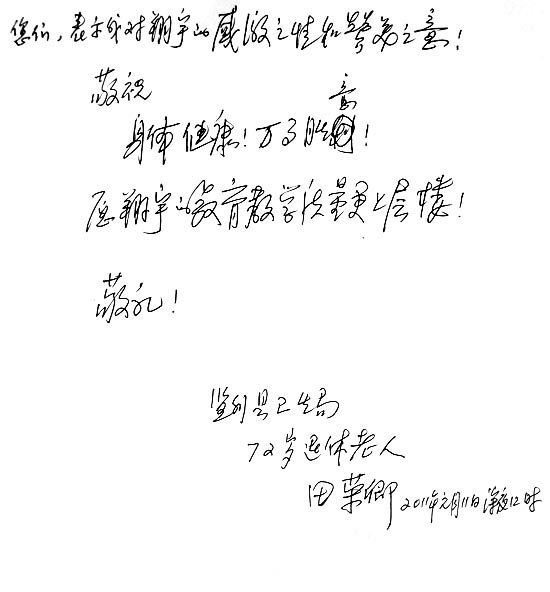 您们，表示我对翔宇的感激之情和崇高之意！
敬祝
身体健康！万事胜意！
愿翔宇的教育教学质量更上层楼！
敬礼！
监利县卫生局
72岁退休老人
田荣卿 2011年元月11日深夜12时